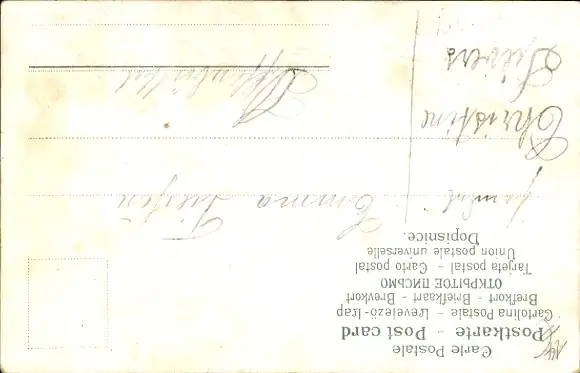 Carte Postale
Postkarte - Post card
Cartolina Postale - Levelező-Lap
Brefkort - Briefkaart - Brevkort
ОТКРЫТОЕ ПИСЬМО
Tarjeta postal - Carto postal
Union postale universelle
Dopisnice.
Emma
Christine
Sievers